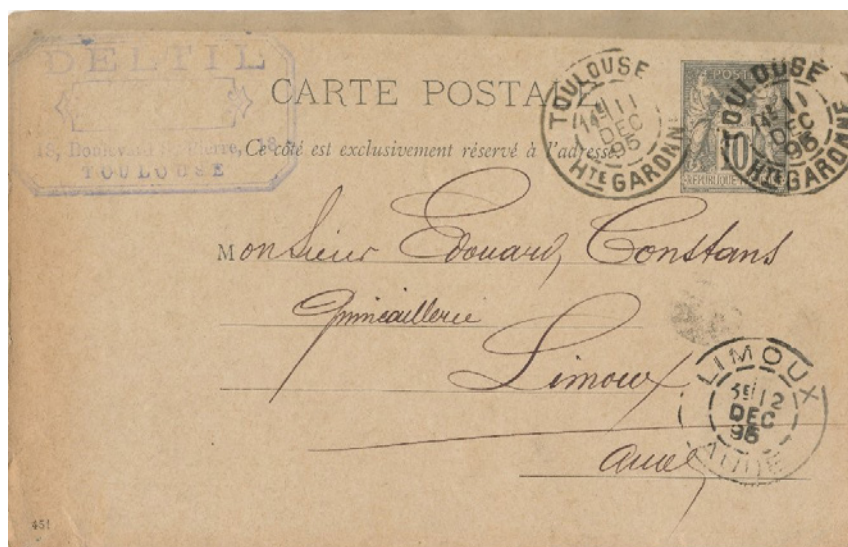 DELTIL
18, Boulevard St Pierre, 18
TOULOUSE
CARTE POSTALE
Ce côté est exclusivement réservé à l'adresse.
TOULOUSE
11
DEC
95
HTE GARONNE
POSTES
10
REPUBLIQUE
TOULOUSE
11
DEC
95
HTE GARONNE
Monsieur Edouard Constans
Quincaillerie
Limoux
Aude
LIMOUX
12
DEC
95
AUDE
451